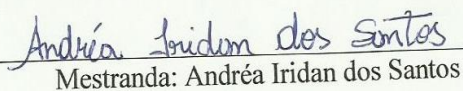 Andréa Iridan dos Santos
Mestranda: Andréa Iridan dos Santos